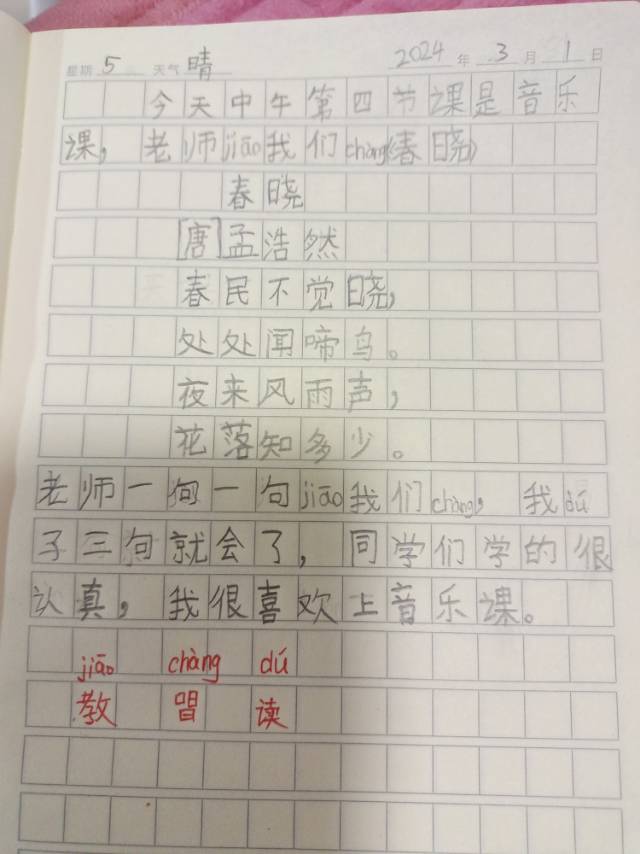 星期 5 天气 晴 2024 年 3 月 1 日
今天中午第四节课是音乐
课，老师jiāo我们chàng《春晓》
春晓
[唐]孟浩然
春民不觉晓，
处处闻啼鸟。
夜来风雨声，
花落知多少。
老师一句一句jiāo我们chàng，我dú
子三句就会了，同学们学的很
认真，我很喜欢上音乐课。
jiāo chàng dú
教 唱 读